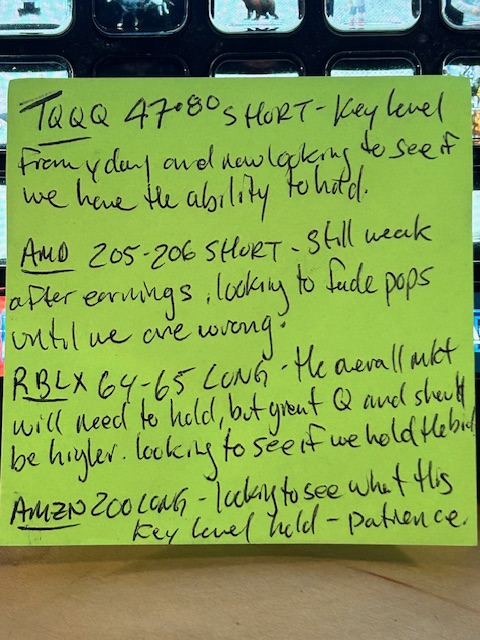 TQQQ 47.80 SHORT - Key level
from yday and now looking to see if
we have the ability to hold.
AMD 205-206 SHORT - Still weak
after earnings, looking to fade pops
until we are wrong.
RBLX 64-65 LONG - the overall mkt
will need to hold, but great Q and should
be higher. looking to see if we hold the bid
AMZN 200 LONG - looking to see what this
Key level hold - patience.